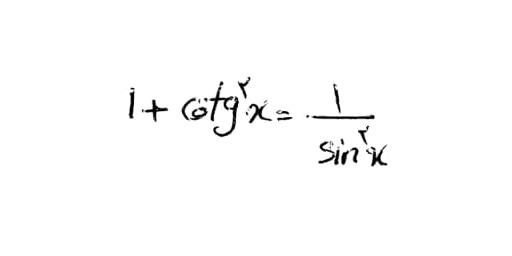 1 + cotg²x = 1/sin²x